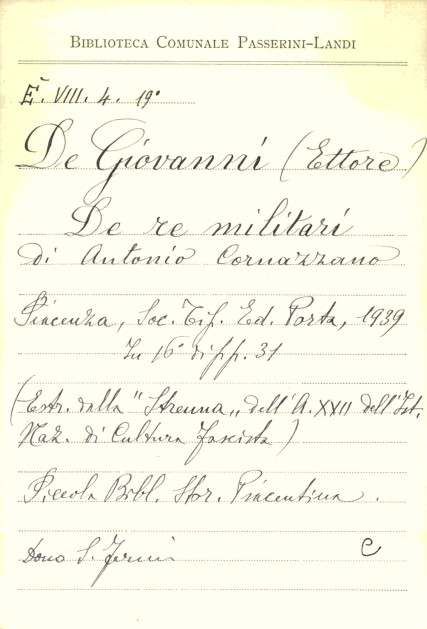 BIBLIOTECA COMUNALE PASSERINI-LANDI
E. VIII. 4. 19°
De Giovanni (Ettore)
De re militari
di Antonio Cornazzano
Piacenza, Soc. Tip. Ed. Porta, 1939
In 16° di pp. 31
(Estr. dalla "Strenna„ dell'A. XVII dell'Ist.
Naz. di Cultura Fascista)
Piccola Bibl. Stor. Piacentina.
Dono S. Fermi
C